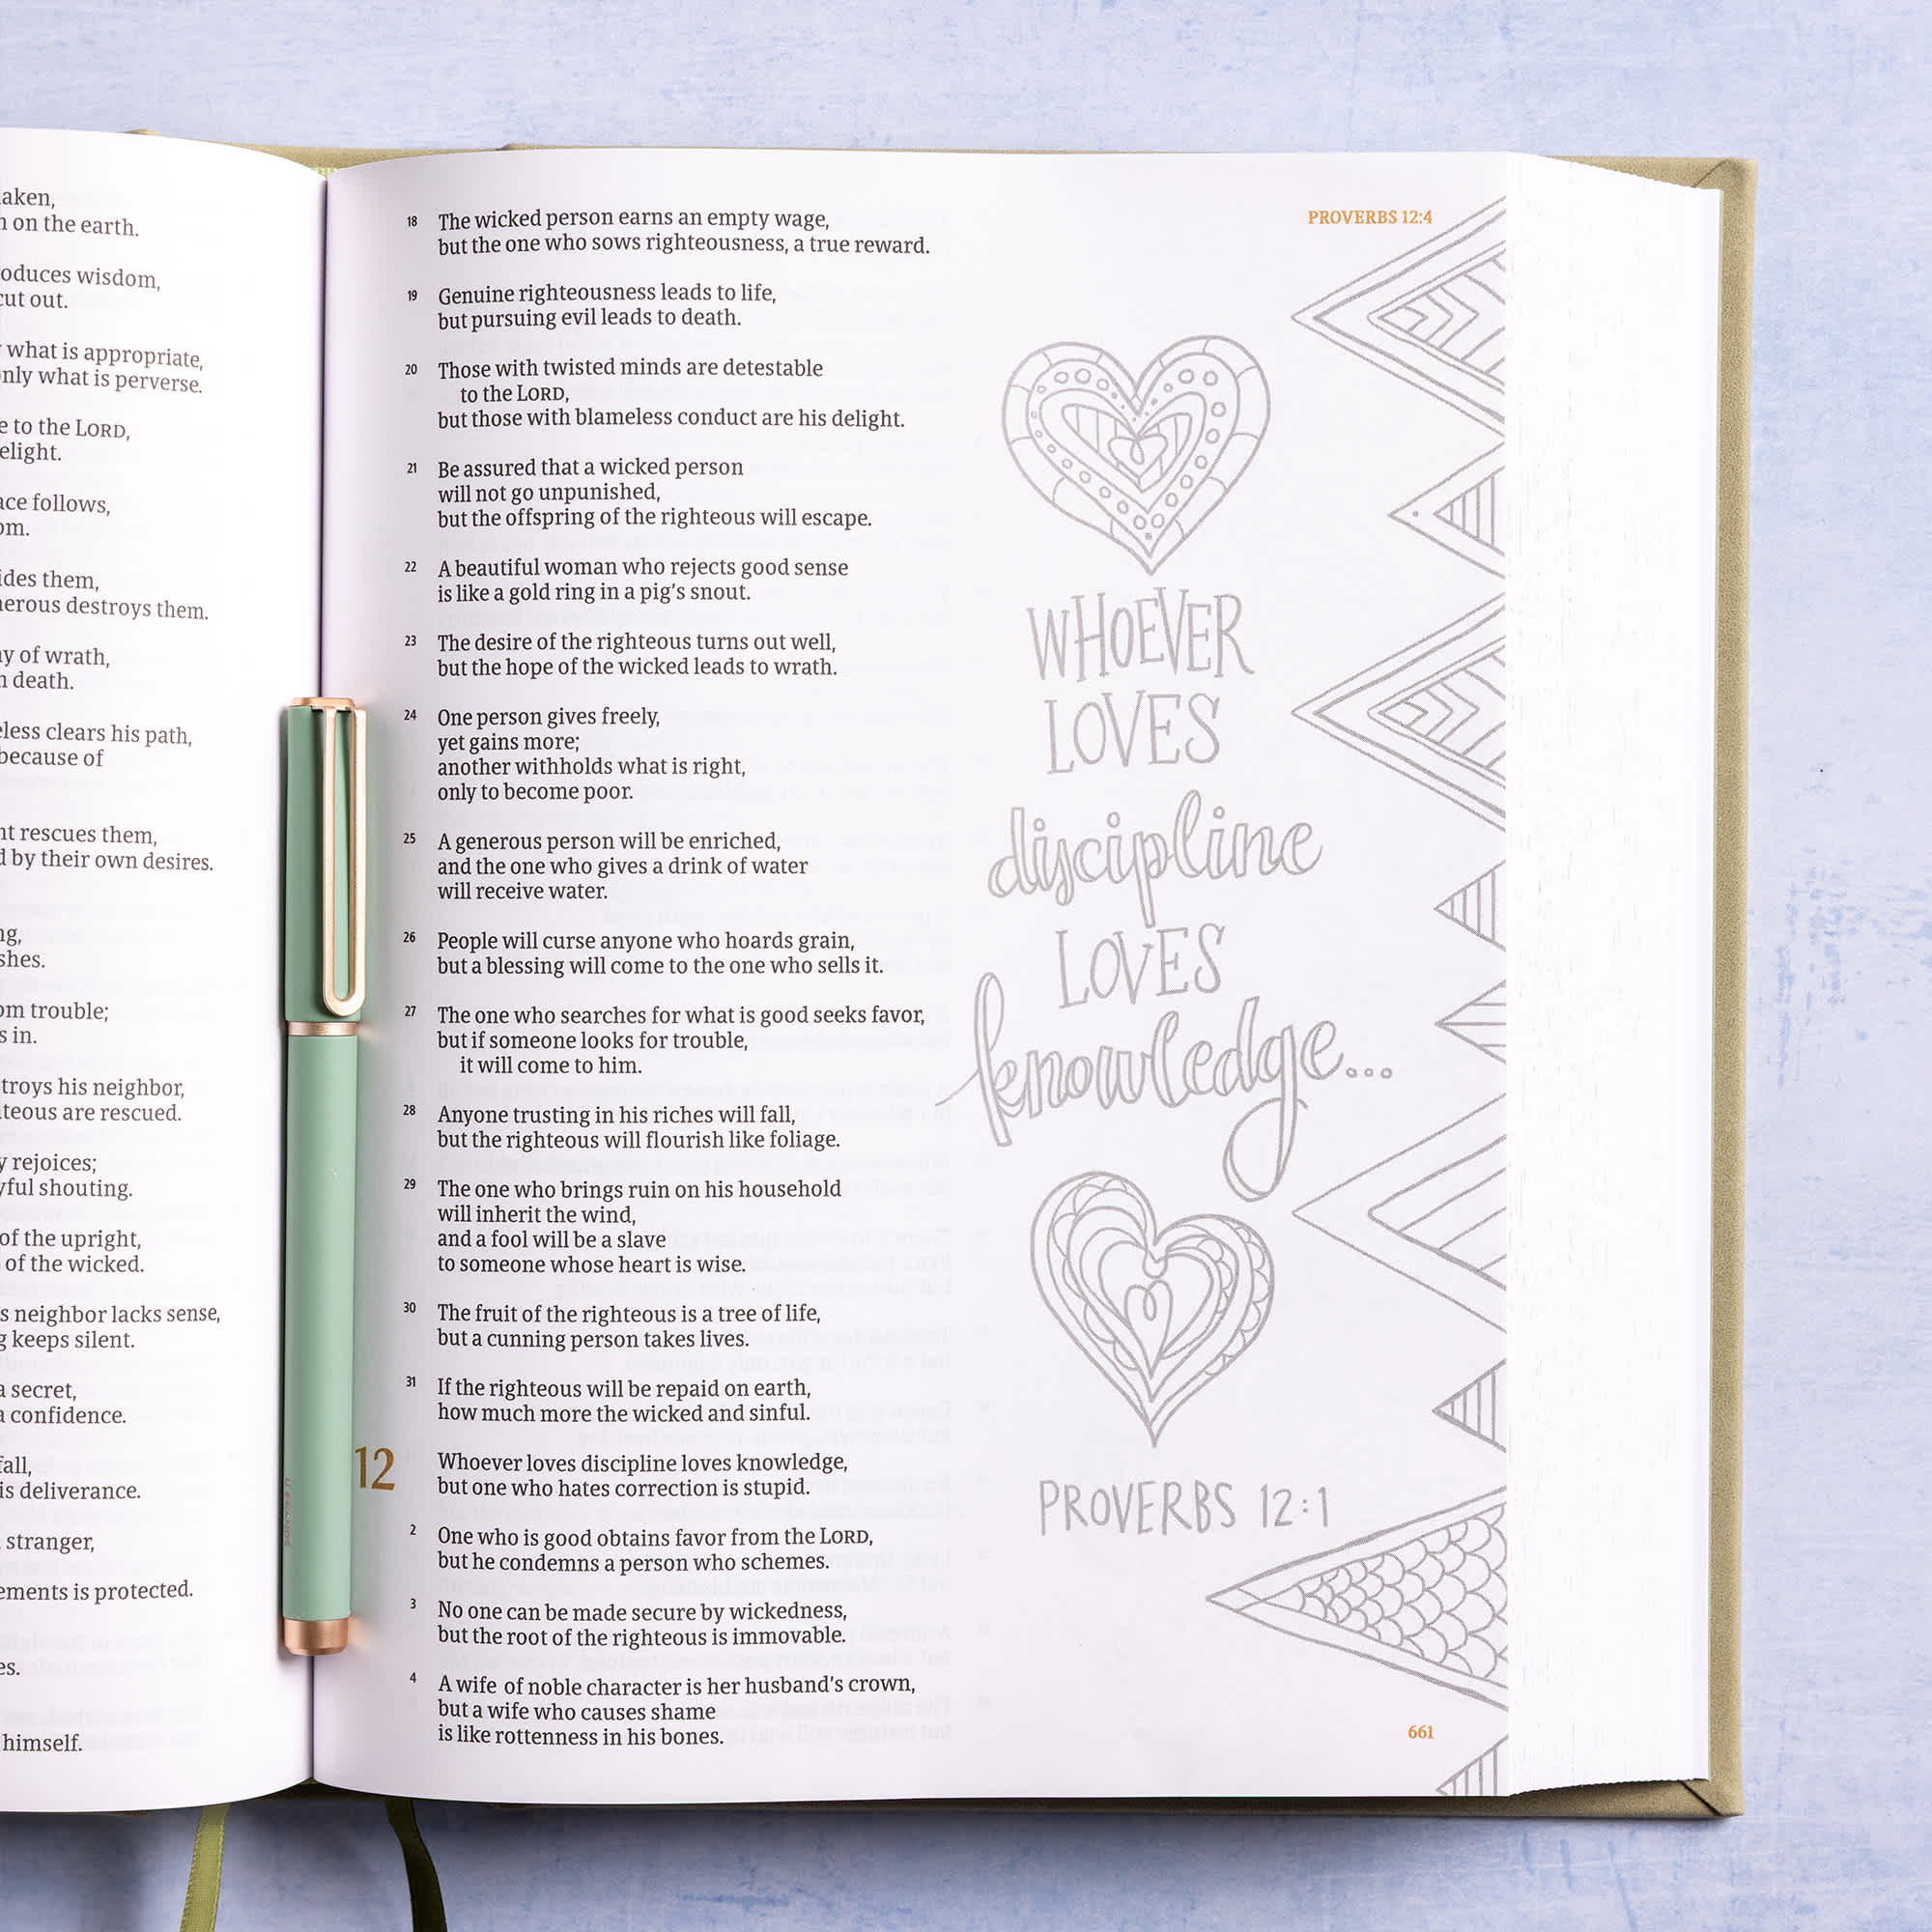 aken,
on the earth.
oduces wisdom,
cut out.
what is appropriate,
only what is perverse.
e to the LORD,
elight.
ace follows,
om.
ides them,
destroys them.
of wrath,
death.
clears his path,
because of
rescues them,
by their own desires.
ng,
shes.
om trouble;
in.
troys his neighbor,
teous are rescued.
rejoices;
yful shouting.
of the upright,
of the wicked.
neighbor lacks sense,
keeps silent.
a secret,
a confidence.
fall,
is deliverance.
stranger,
ements is protected.
es.
himself.
PROVERBS 12:4
18 The wicked person earns an empty wage,
but the one who sows righteousness, a true reward.
19 Genuine righteousness leads to life,
but pursuing evil leads to death.
20 Those with twisted minds are detestable
to the LORD,
but those with blameless conduct are his delight.
21 Be assured that a wicked person
will not go unpunished,
but the offspring of the righteous will escape.
22 A beautiful woman who rejects good sense
is like a gold ring in a pig's snout.
23 The desire of the righteous turns out well,
but the hope of the wicked leads to wrath.
24 One person gives freely,
yet gains more;
another withholds what is right,
only to become poor.
25 A generous person will be enriched,
and the one who gives a drink of water
will receive water.
26 People will curse anyone who hoards grain,
but a blessing will come to the one who sells it.
27 The one who searches for what is good seeks favor,
but if someone looks for trouble,
it will come to him.
28 Anyone trusting in his riches will fall,
but the righteous will flourish like foliage.
29 The one who brings ruin on his household
will inherit the wind,
and a fool will be a slave
to someone whose heart is wise.
30 The fruit of the righteous is a tree of life,
but a cunning person takes lives.
31 If the righteous will be repaid on earth,
how much more the wicked and sinful.
12 Whoever loves discipline loves knowledge,
but one who hates correction is stupid.
2 One who is good obtains favor from the LORD,
but he condemns a person who schemes.
3 No one can be made secure by wickedness,
but the root of the righteous is immovable.
4 A wife of noble character is her husband's crown,
but a wife who causes shame
is like rottenness in his bones.
WHOEVER
LOVES
discipline
LOVES
knowledge...
PROVERBS 12:1
661